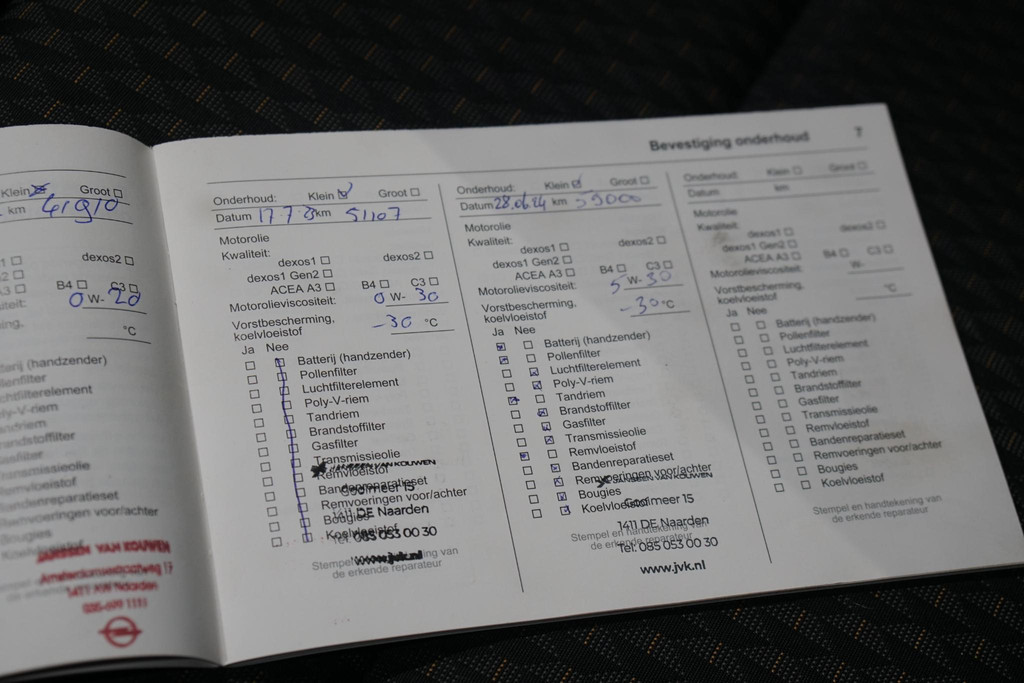 Bevestiging onderhoud 7
Klein Groot
km
dexos2
B4 C3
0 W- 20
°C
JANSSEN VAN KOUWEN
Amsterdamsestraatweg 17
1411 AW Naarden
035-699 1111
Onderhoud: Klein Groot
Datum 17 7 km 51107
Motorolie
Kwaliteit:
dexos1 dexos2
dexos1 Gen2
ACEA A3 B4 C3
Motorolieviscositeit: 0 W- 30
Vorstbescherming,
koelvloeistof -30 °C
Ja Nee
Batterij (handzender)
Pollenfilter
Luchtfilterelement
Poly-V-riem
Tandriem
Brandstoffilter
Gasfilter
Transmissieolie
Remvloeistof
JANSSEN VAN KOUWEN
Bandenreparatieset
Gooimeer 15
Remvoeringen voor/achter
1411 DE Naarden
Bougies
Koelvloeistof
Tel: 085 053 00 30
www.jvk.nl
Stempel en handtekening van
de erkende reparateur
Onderhoud: Klein Groot
Datum 28.06.24 km 59000
Motorolie
Kwaliteit:
dexos1 dexos2
dexos1 Gen2
ACEA A3 B4 C3
Motorolieviscositeit: 5 W- 30
Vorstbescherming,
koelvloeistof -30 °C
Ja Nee
Batterij (handzender)
Pollenfilter
Luchtfilterelement
Poly-V-riem
Tandriem
Brandstoffilter
Gasfilter
Transmissieolie
Remvloeistof
Bandenreparatieset
Remvoeringen voor/achter
JANSSEN VAN KOUWEN
Bougies
Gooimeer 15
Koelvloeistof
1411 DE Naarden
Stempel en handtekening van
de erkende reparateur
Tel: 085 053 00 30
www.jvk.nl
Onderhoud: Klein Groot
Datum km
Motorolie
Kwaliteit:
dexos1 dexos2
dexos1 Gen2
ACEA A3 B4 C3
Motorolieviscositeit: W-
Vorstbescherming,
koelvloeistof °C
Ja Nee
Batterij (handzender)
Pollenfilter
Luchtfilterelement
Poly-V-riem
Tandriem
Brandstoffilter
Gasfilter
Transmissieolie
Remvloeistof
Bandenreparatieset
Remvoeringen voor/achter
Bougies
Koelvloeistof
Stempel en handtekening van
de erkende reparateur